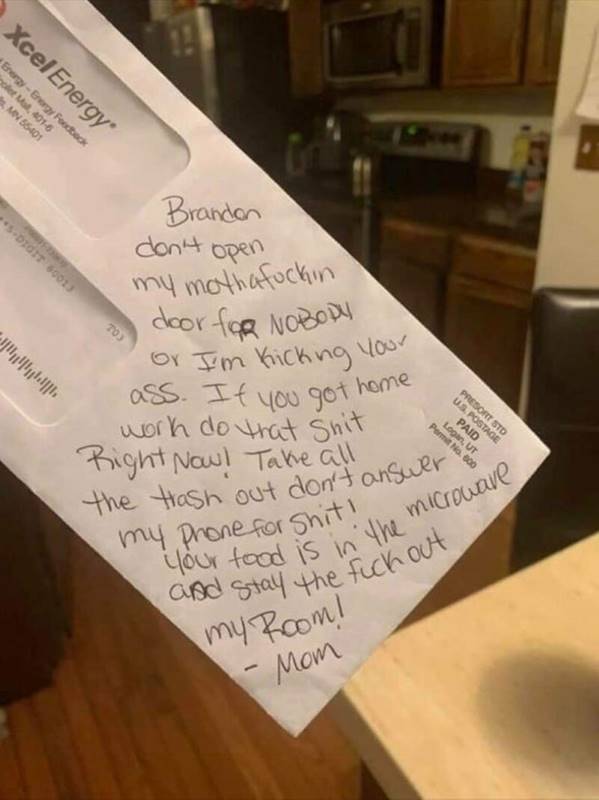 Xcel Energy®
Energy - Energy Feedback
Mall, 401-6
MN 55401
5-DIGIT 60013
703
Brandon
don't open
my mothafuckin
door foR NOBODY
or I'm kicking your
ass. If you got home
work do that shit
Right Now! Take all
the trash out don't answer
my phone for shit!
Your food is in the microwave
and stay the fuck out
my Room!
- Mom
PRESORT STD
U.S. POSTAGE
PAID
Logan, UT
Permit No. 600